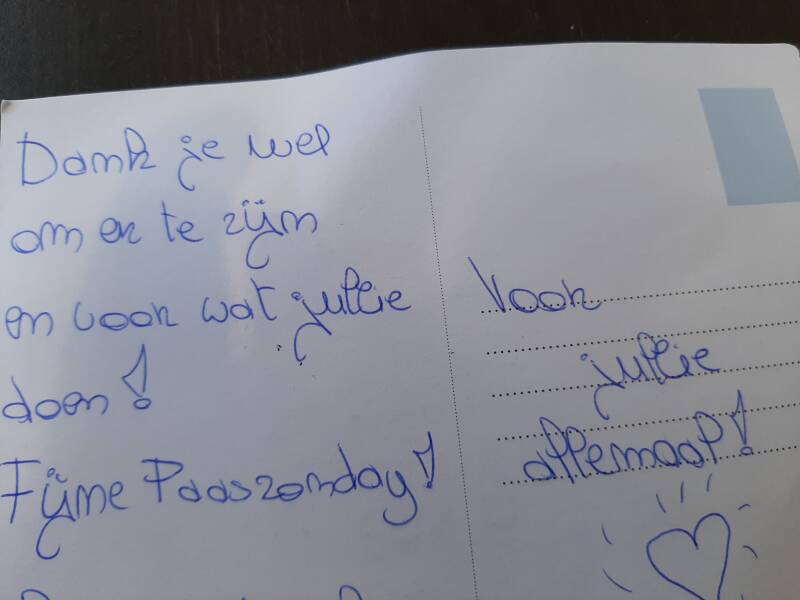 Dank je wel
om er te zijn
en voor wat jullie
doen!
Fijne Paaszondag!
Voor
jullie
allemaal!